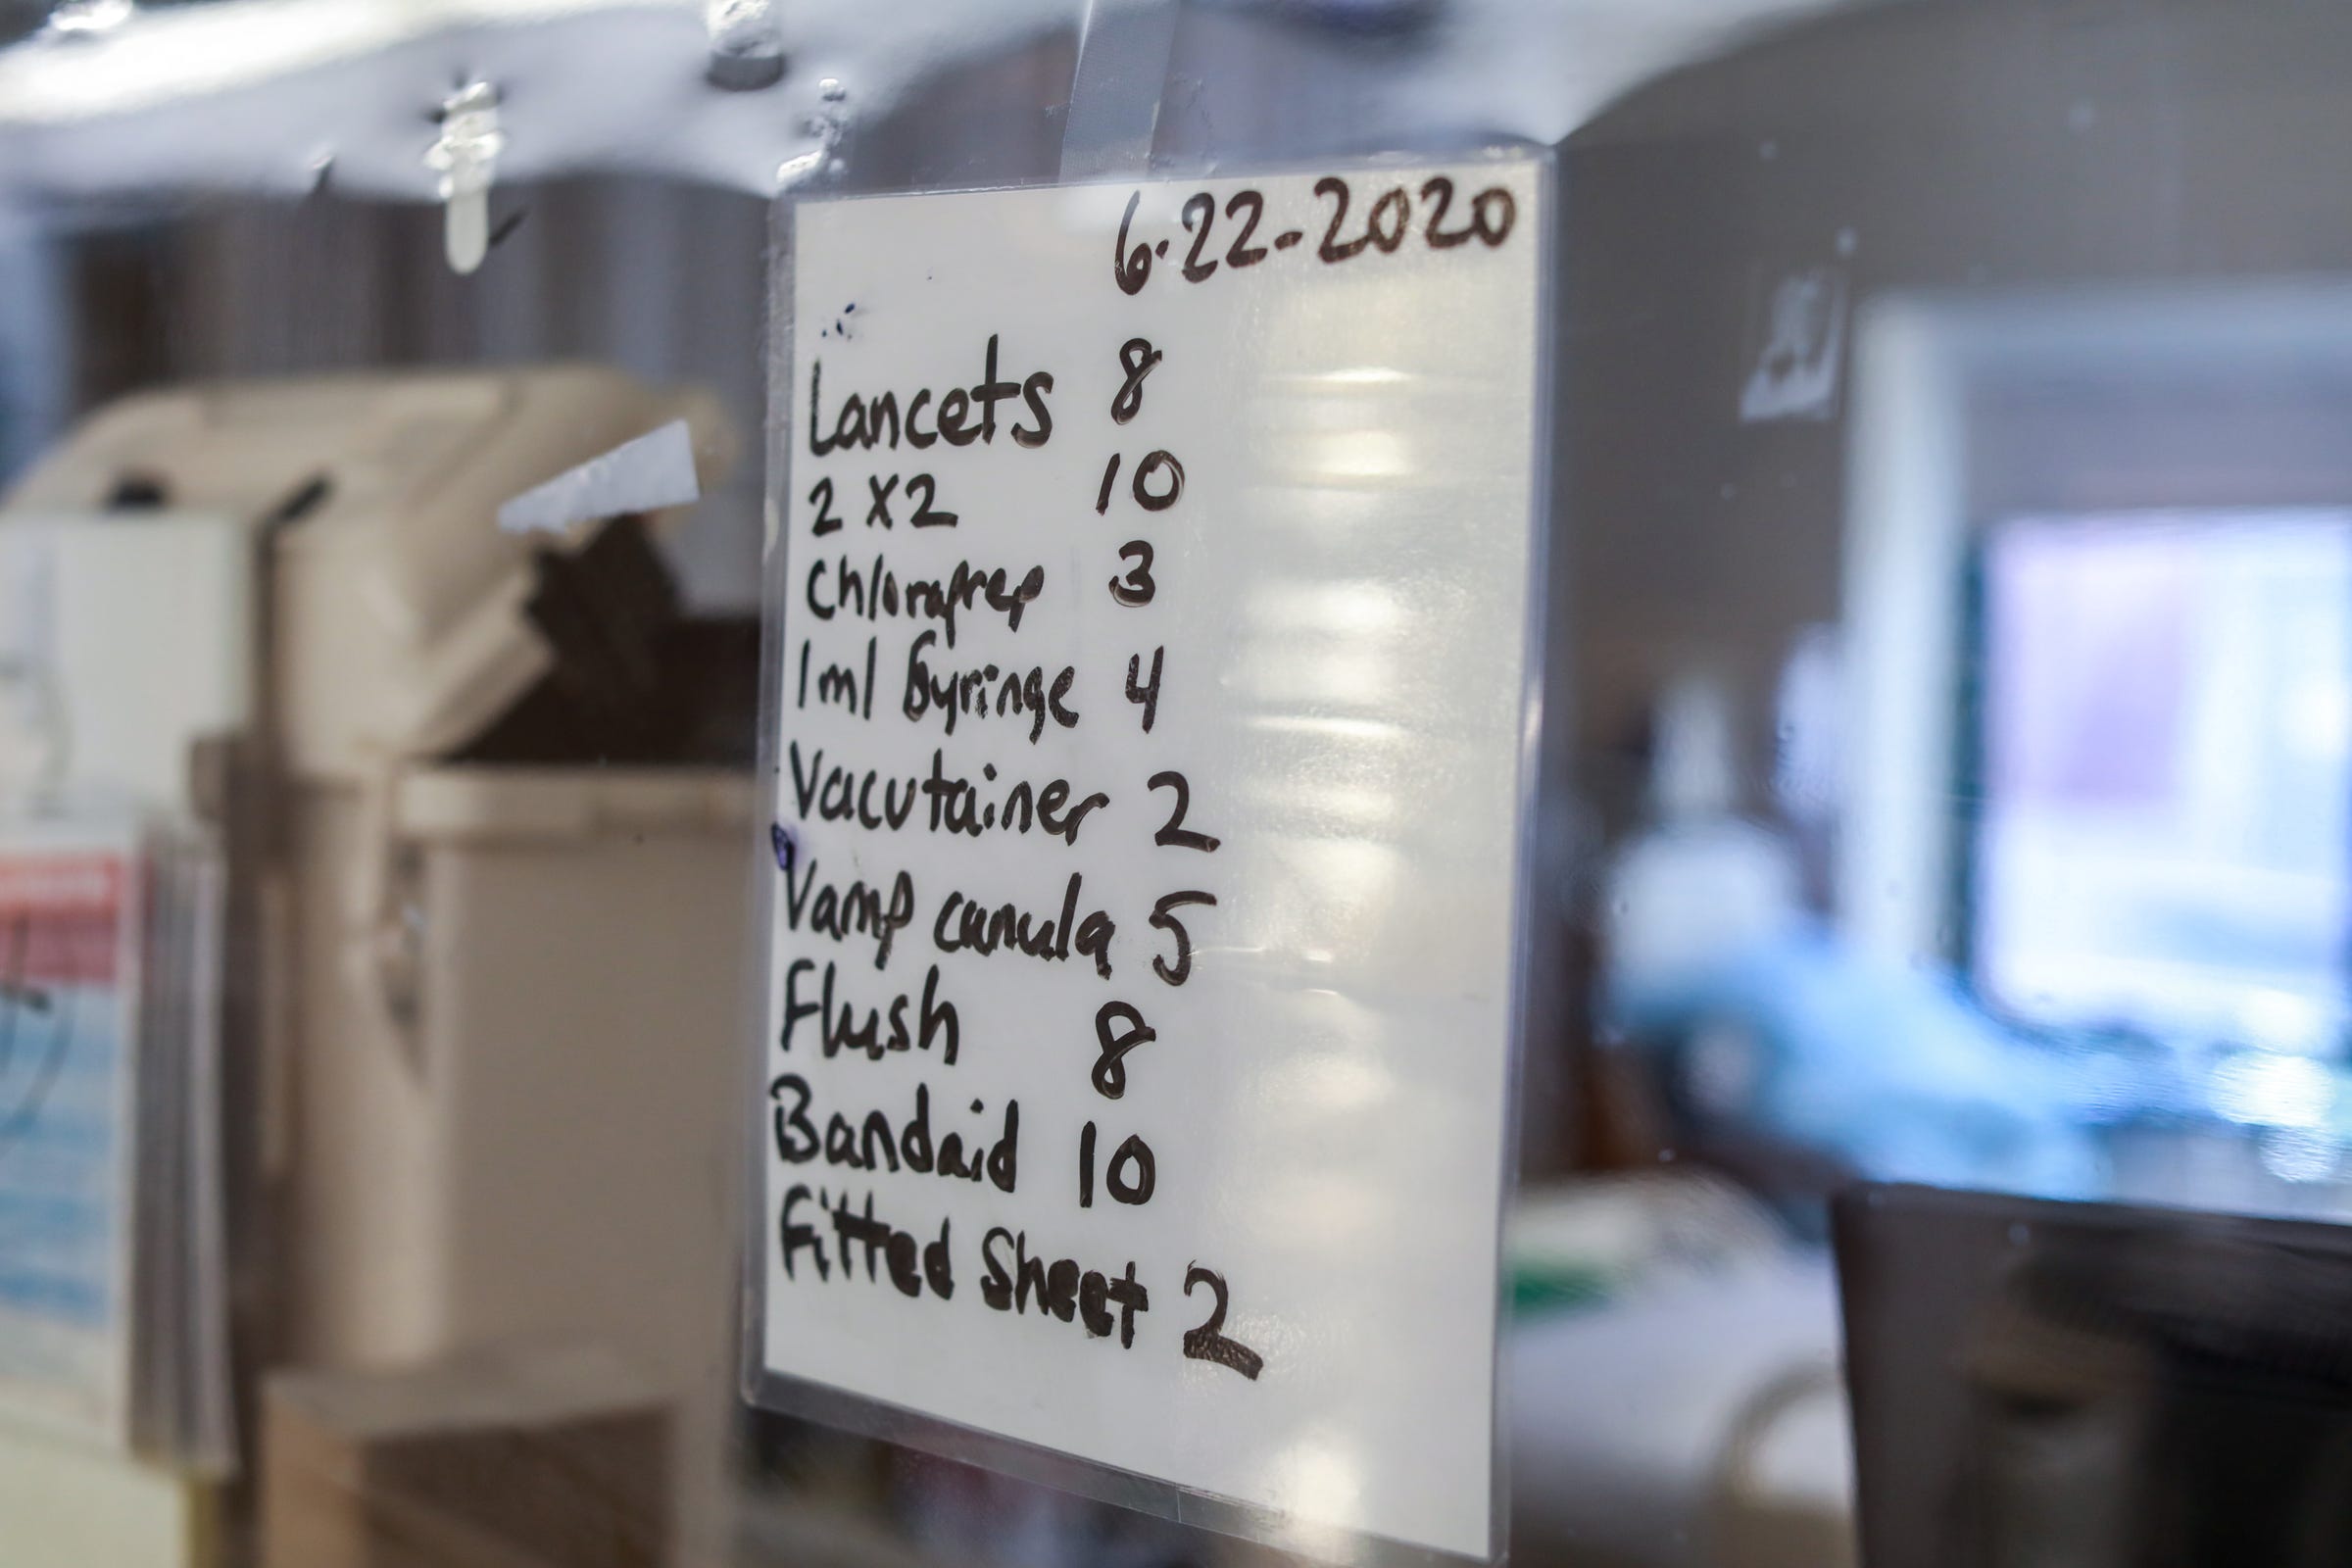 6-22-2020
Lancets 8
2 x 2 10
Chloraprep 3
1ml Syringe 4
Vacutainer 2
Vamp canula 5
Flush 8
Bandaid 10
Fitted Sheet 2